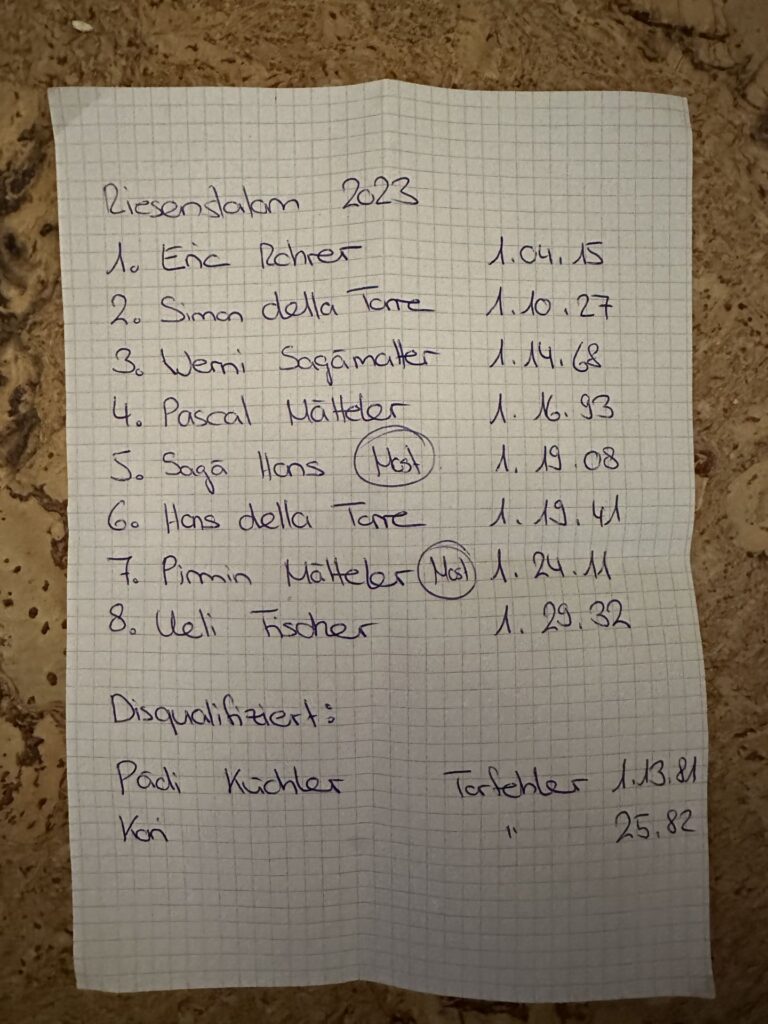 Riesenslalom 2023
1. Eric Rohrer 1.04.15
2. Simon della Torre 1.10.27
3. Werni Sagämatter 1.14.68
4. Pascal Mätteler 1.16.93
5. Sagä Hans Most 1.19.08
6. Hans della Torre 1.19.41
7. Pirmin Mätteler Most 1.24.11
8. Ueli Fischer 1.29.32
Disqualifiziert:
Pädi Küchler Torfehler 1.13.81
" 25.82